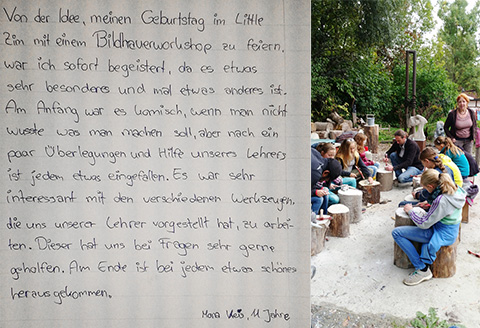 Von der Idee, meinen Geburtstag im Little
Zim mit einem Bildhauerworkshop zu feiern,
war ich sofort begeistert, da es etwas
sehr besonderes und mal etwas anderes ist.
Am Anfang war es komisch, wenn man nicht
wusste was man machen soll, aber nach ein
paar Überlegungen und Hilfe unseres Lehrers
ist jedem etwas eingefallen. Es war sehr
interessant mit den verschiedenen Werkzeugen,
die uns unserer Lehrer vorgestellt hat, zu arbei-
ten. Dieser hat uns bei Fragen sehr gerne
geholfen. Am Ende ist bei jedem etwas schönes
herausgekommen.
11 Jahre